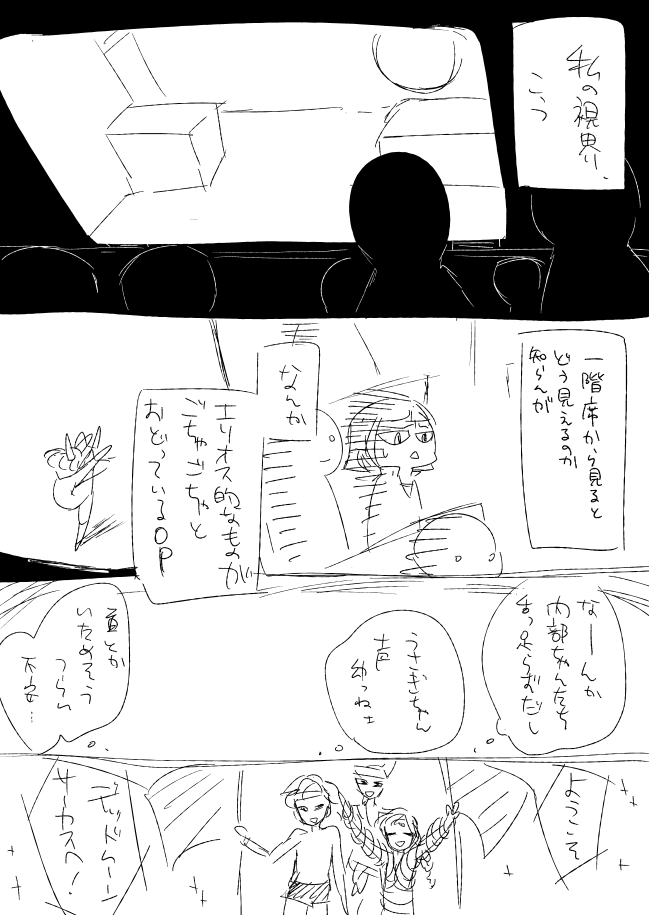 私の視界、
こっつ
一階席から見ると
どう見えるのか
知らんが
なんか
エリオス的なものが
ごちゃごちゃと
おどっているOP
なーんか
内部ちゃんたち
舌っ足らずだし
うさぎちゃん
声
幼っねェ
首とか
いためそう
つらい
不安…
ようこそ
デッドムーン
サーカスへ!